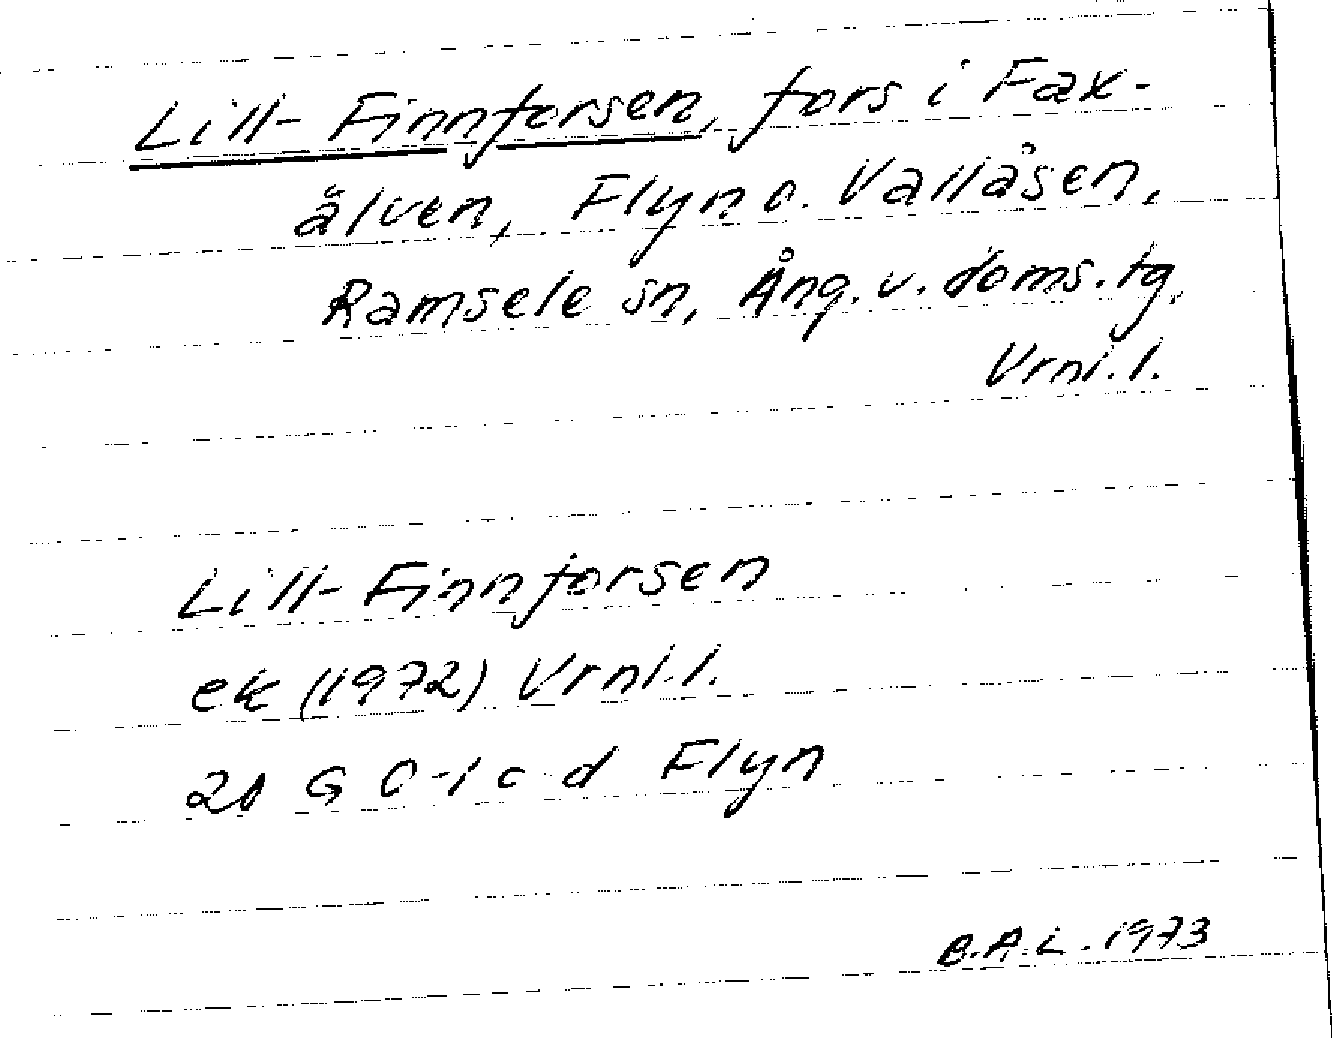 Lill-Finnforsen, fors i Fax-
älven, Flyn o. Vallåsen,
Ramsele sn, Ång. v. doms. tg.
Vrnl.l.
Lill-Finnforsen
ek (1972) Vrnl.l.
20 G 0-1 c-d Flyn
B.A.L. 1973